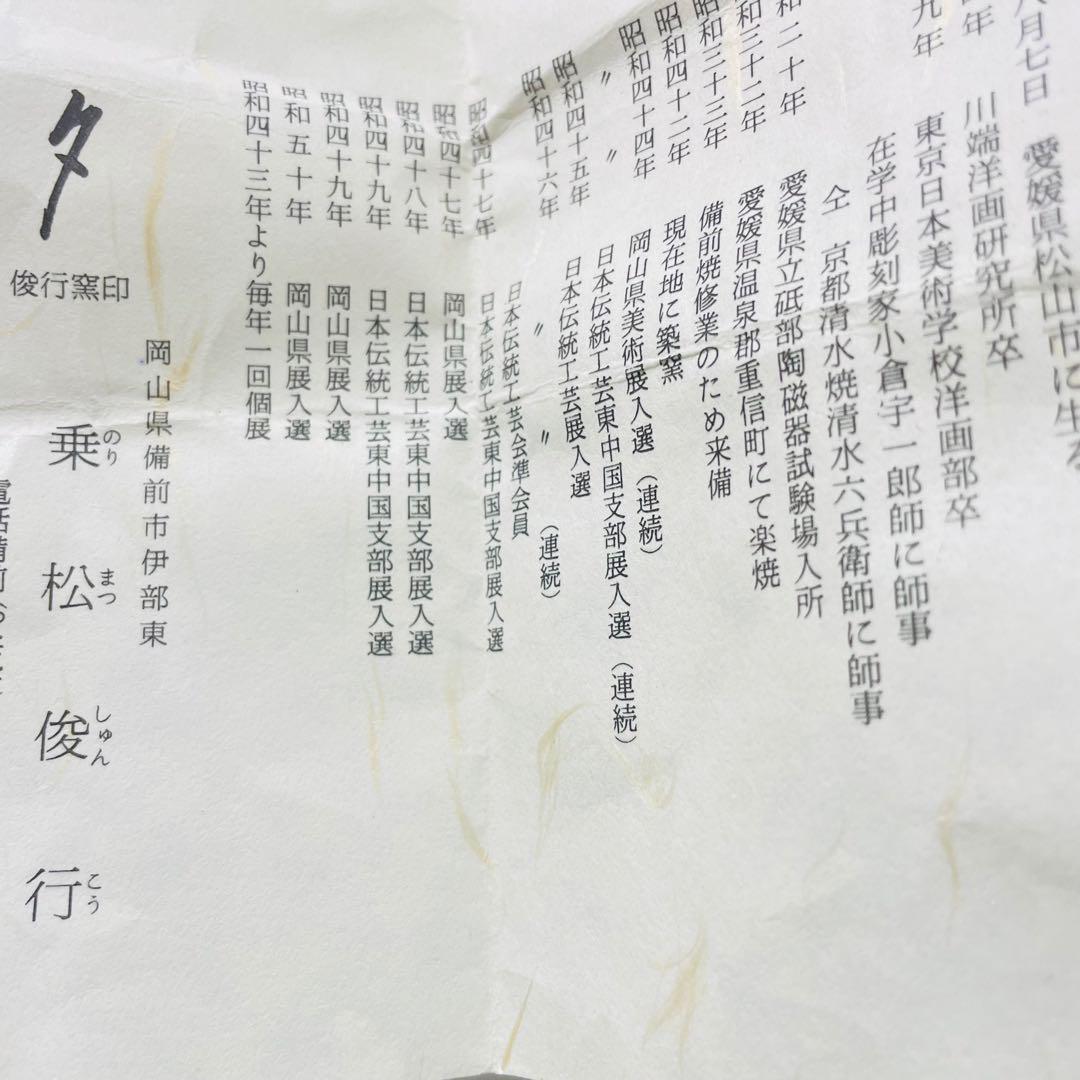 八月七日 愛媛県松山市に生る
年 川端洋画研究所卒
九年 東京日本美術学校洋画部卒
在学中彫刻家小倉宇一郎師に師事
仝 京都清水焼清水六兵衛師に師事
和二十年 愛媛県立砥部陶磁器試験場入所
和三十二年 愛媛県温泉郡重信町にて楽焼
昭和三十三年 備前焼修業のため来備
昭和四十二年 現在地に築窯
昭和四十四年 岡山県美術展入選(連続)
〃 〃 日本伝統工芸東中国支部展入選(連続)
昭和四十五年 日本伝統工芸展入選
昭和四十六年 〃 〃 (連続)
日本伝統工芸会準会員
昭和四十七年 日本伝統工芸東中国支部展入選
昭和四十七年 岡山県展入選
昭和四十八年 日本伝統工芸東中国支部展入選
昭和四十九年 日本伝統工芸東中国支部展入選
昭和四十九年 岡山県展入選
昭和五十年 岡山県展入選
昭和四十三年より毎年一回個展
岡山県備前市伊部東
俊行窯印
乗松俊行
のりまつしゅんこう
電話備前